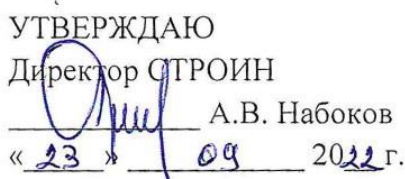 УТВЕРЖДАЮ
Директор СТРОИН
А.В. Набоков
« 23 » 09 2022 г.